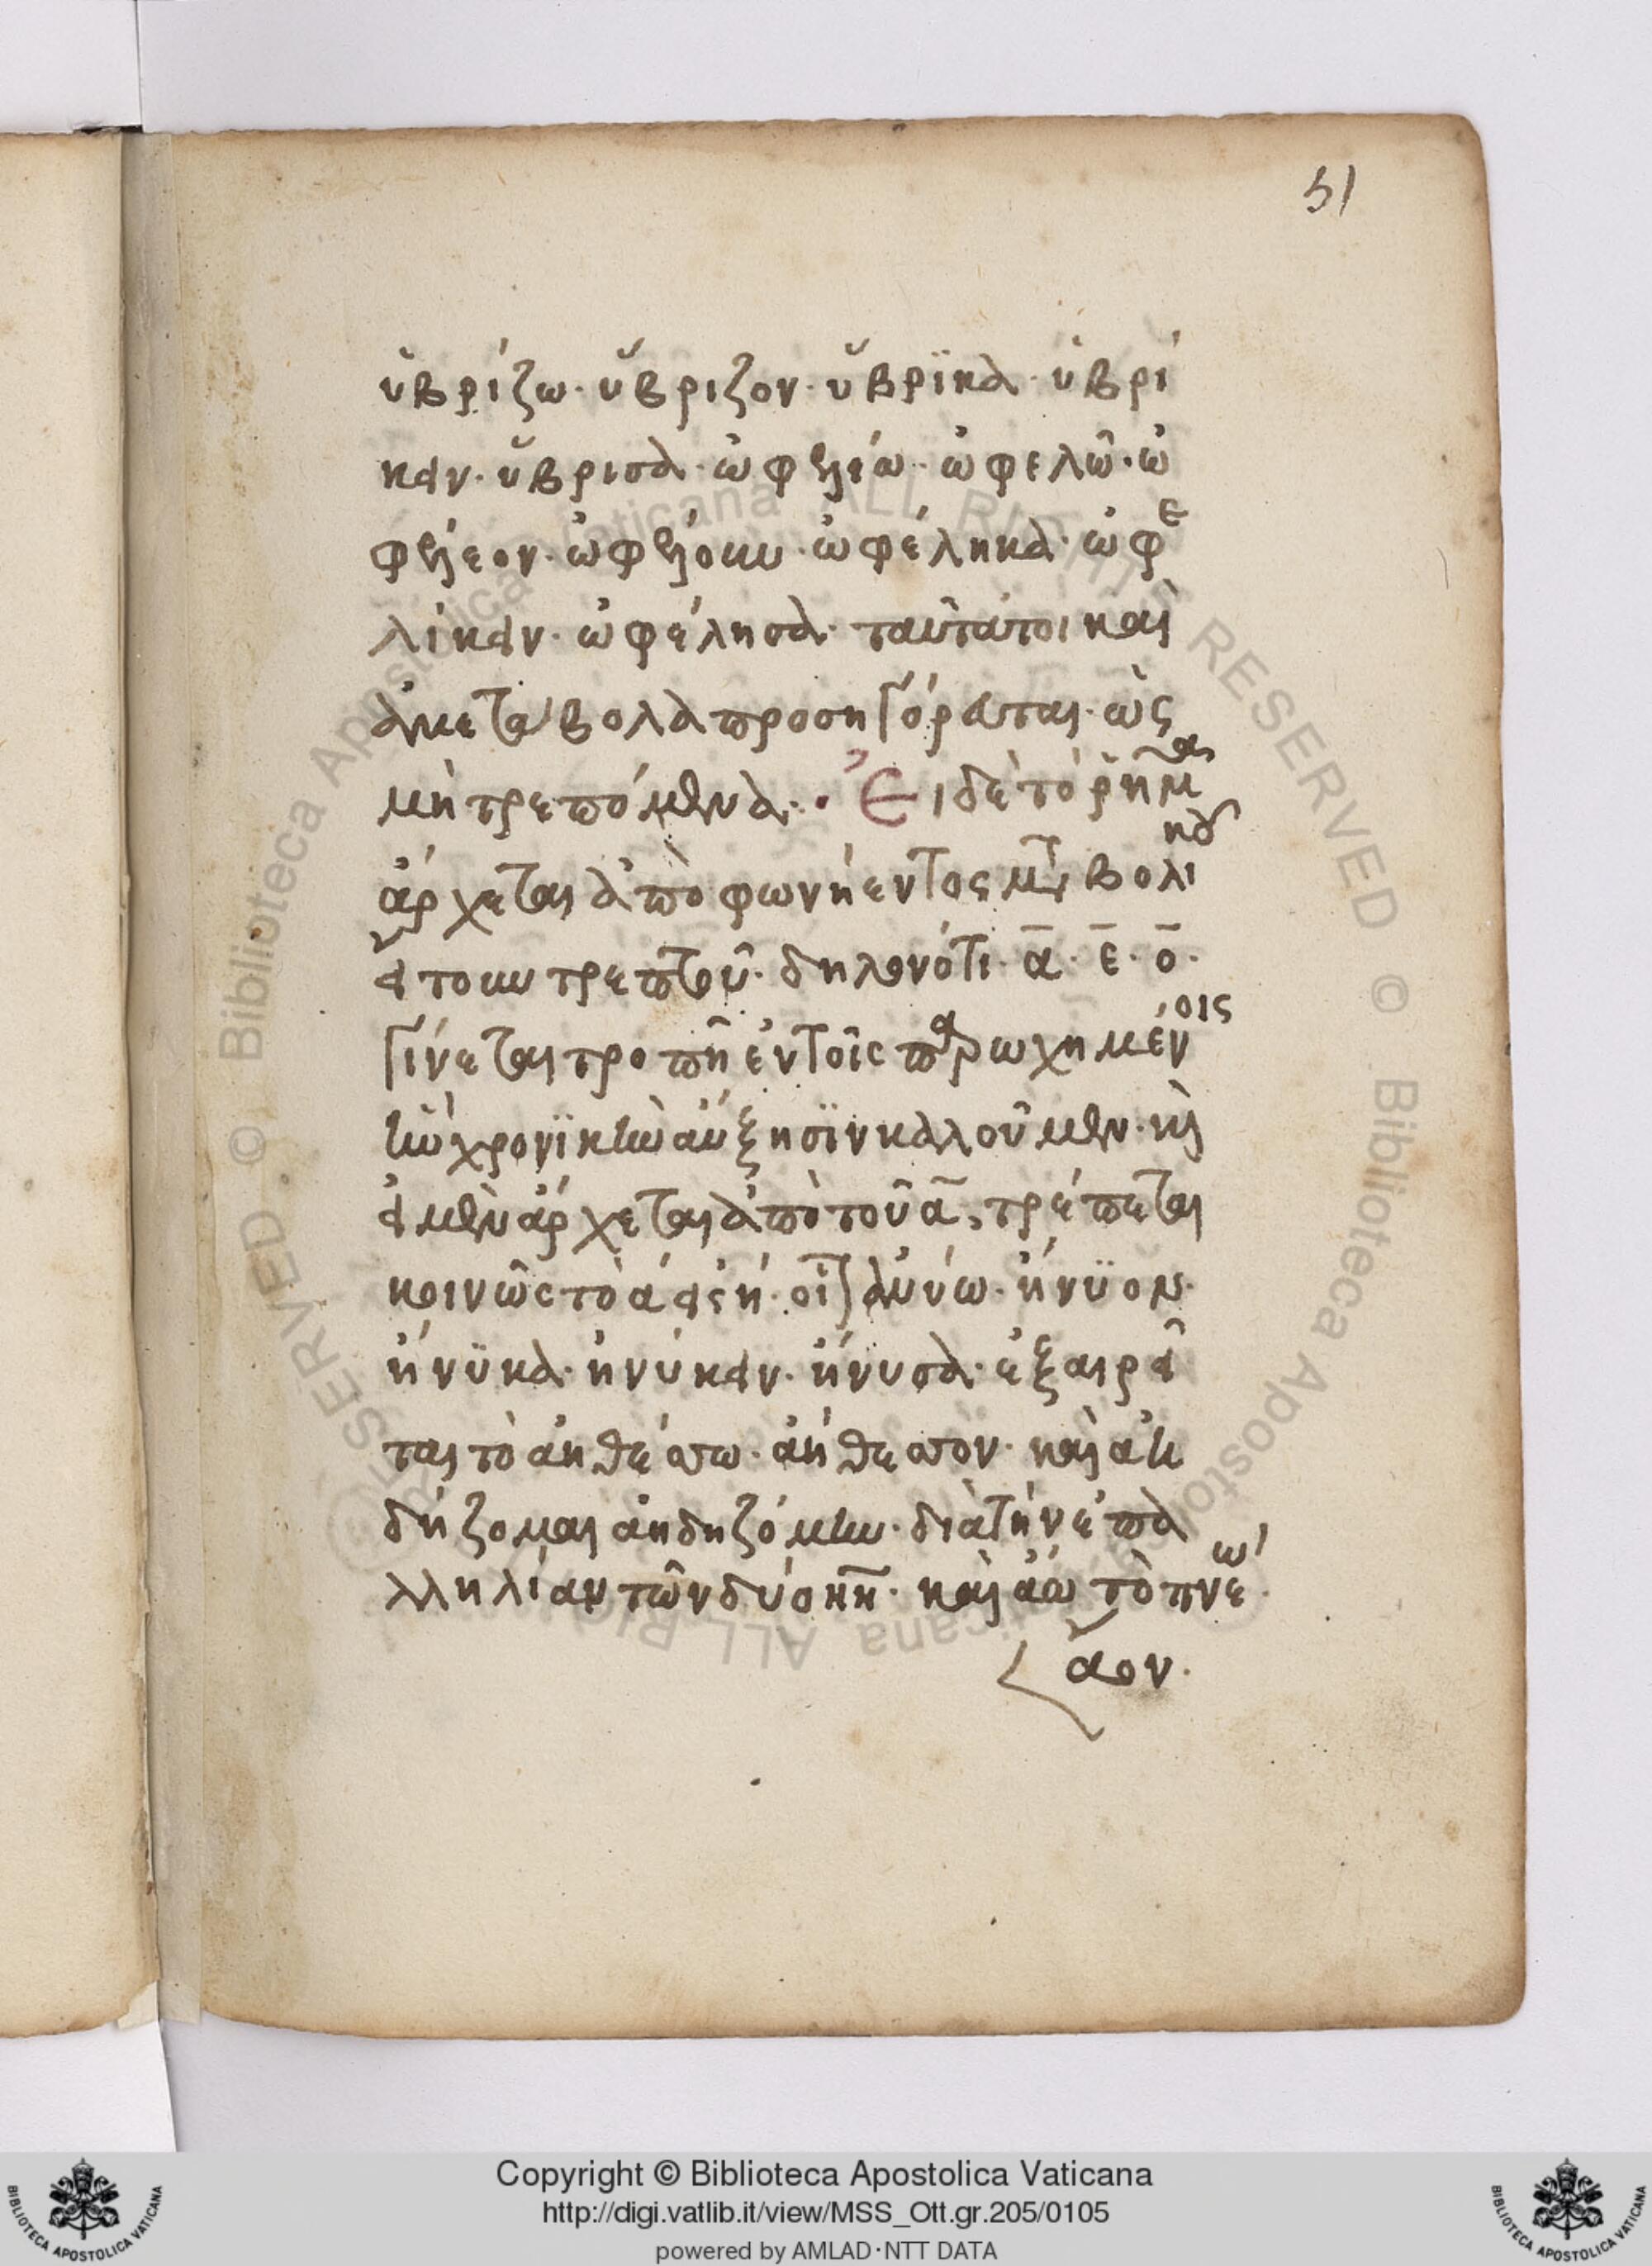 51
ὑβρίζω· ὕβριζον· ὕβρϊκα· ὑβρί
κειν· ὕβρισα· ὠφελέω· ὠφελῶ· ὠ
φέλεον· ὠφέλουν· ὠφέληκα· ὠφε
λίκειν· ὠφέλησα· ταῦτά τοι καὶ
ἀμετάβολα προσηγόρευται· ὡς
μὴ τρεπόμενα·· Εἰ δὲ τὸ ῥῆμα
ἄρχεται ἀπὸ φωνήεντος μεταβολικοῦ
εἴτουν τρεπτοῦ· δηλονότι· α· ε· ο·
γίνεται τροπὴ ἐν τοῖς παρωχημένοις
ἣν χρονϊκὴν αὔξησϊν καλοῦμεν· κὶ
εἰ μὲν ἄρχεται ἀπὸ τοῦ α, τρέπεται
κοινῶς τὸ α εἰς η· οἷον ἀνύω· ἤνϋον·
ἤνϋκα· ἠνύκειν· ἤνυσα· ἐξαιρεῖ
ται τὸ ἀηθέσσω· ἀήθεσσον· καὶ ἀη
δίζομαι ἀηδιζόμην· διὰ τὴν ἐπα
λληλίαν τῶν δύο ηη· καὶ ἄω τὸ πνέω
ἄον·
Copyright © Biblioteca Apostolica Vaticana
http://digi.vatlib.it/view/MSS_Ott.gr.205/0105
powered by AMLAD·NTT DATA
BIBLIOTECA APOSTOLICA VATICANA
BIBLIOTECA APOSTOLICA VATICANA